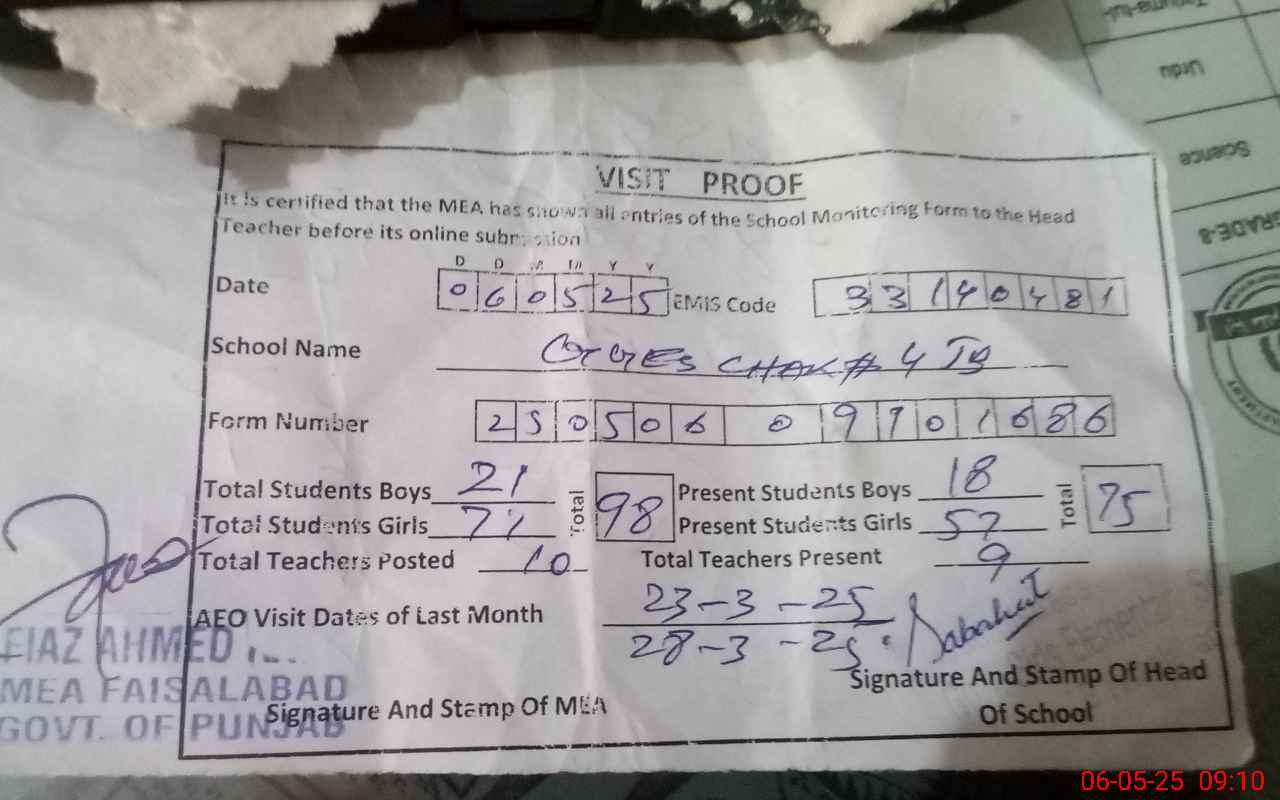 VISIT PROOF
It is certified that the MEA has shown all entries of the School Monitoring Form to the Head
Teacher before its online submission
D D M M Y Y
Date 060525 EMIS Code 33140481
School Name GGES CHAK # 4 JB
Form Number
Total Students Boys 21 Total 98 Present Students Boys 18 Total 75
Total Students Girls 77 Present Students Girls 57
Total Teachers Posted 10 Total Teachers Present 9
AEO Visit Dates of Last Month 23-3-25
28-3-25
Sabahat
EIAZ AHMED
MEA FAISALABAD
GOVT. OF PUNJAB
Signature And Stamp Of MEA
Signature And Stamp Of Head
Of School
Urdu
Science
GRADE-8
06-05-25 09:10